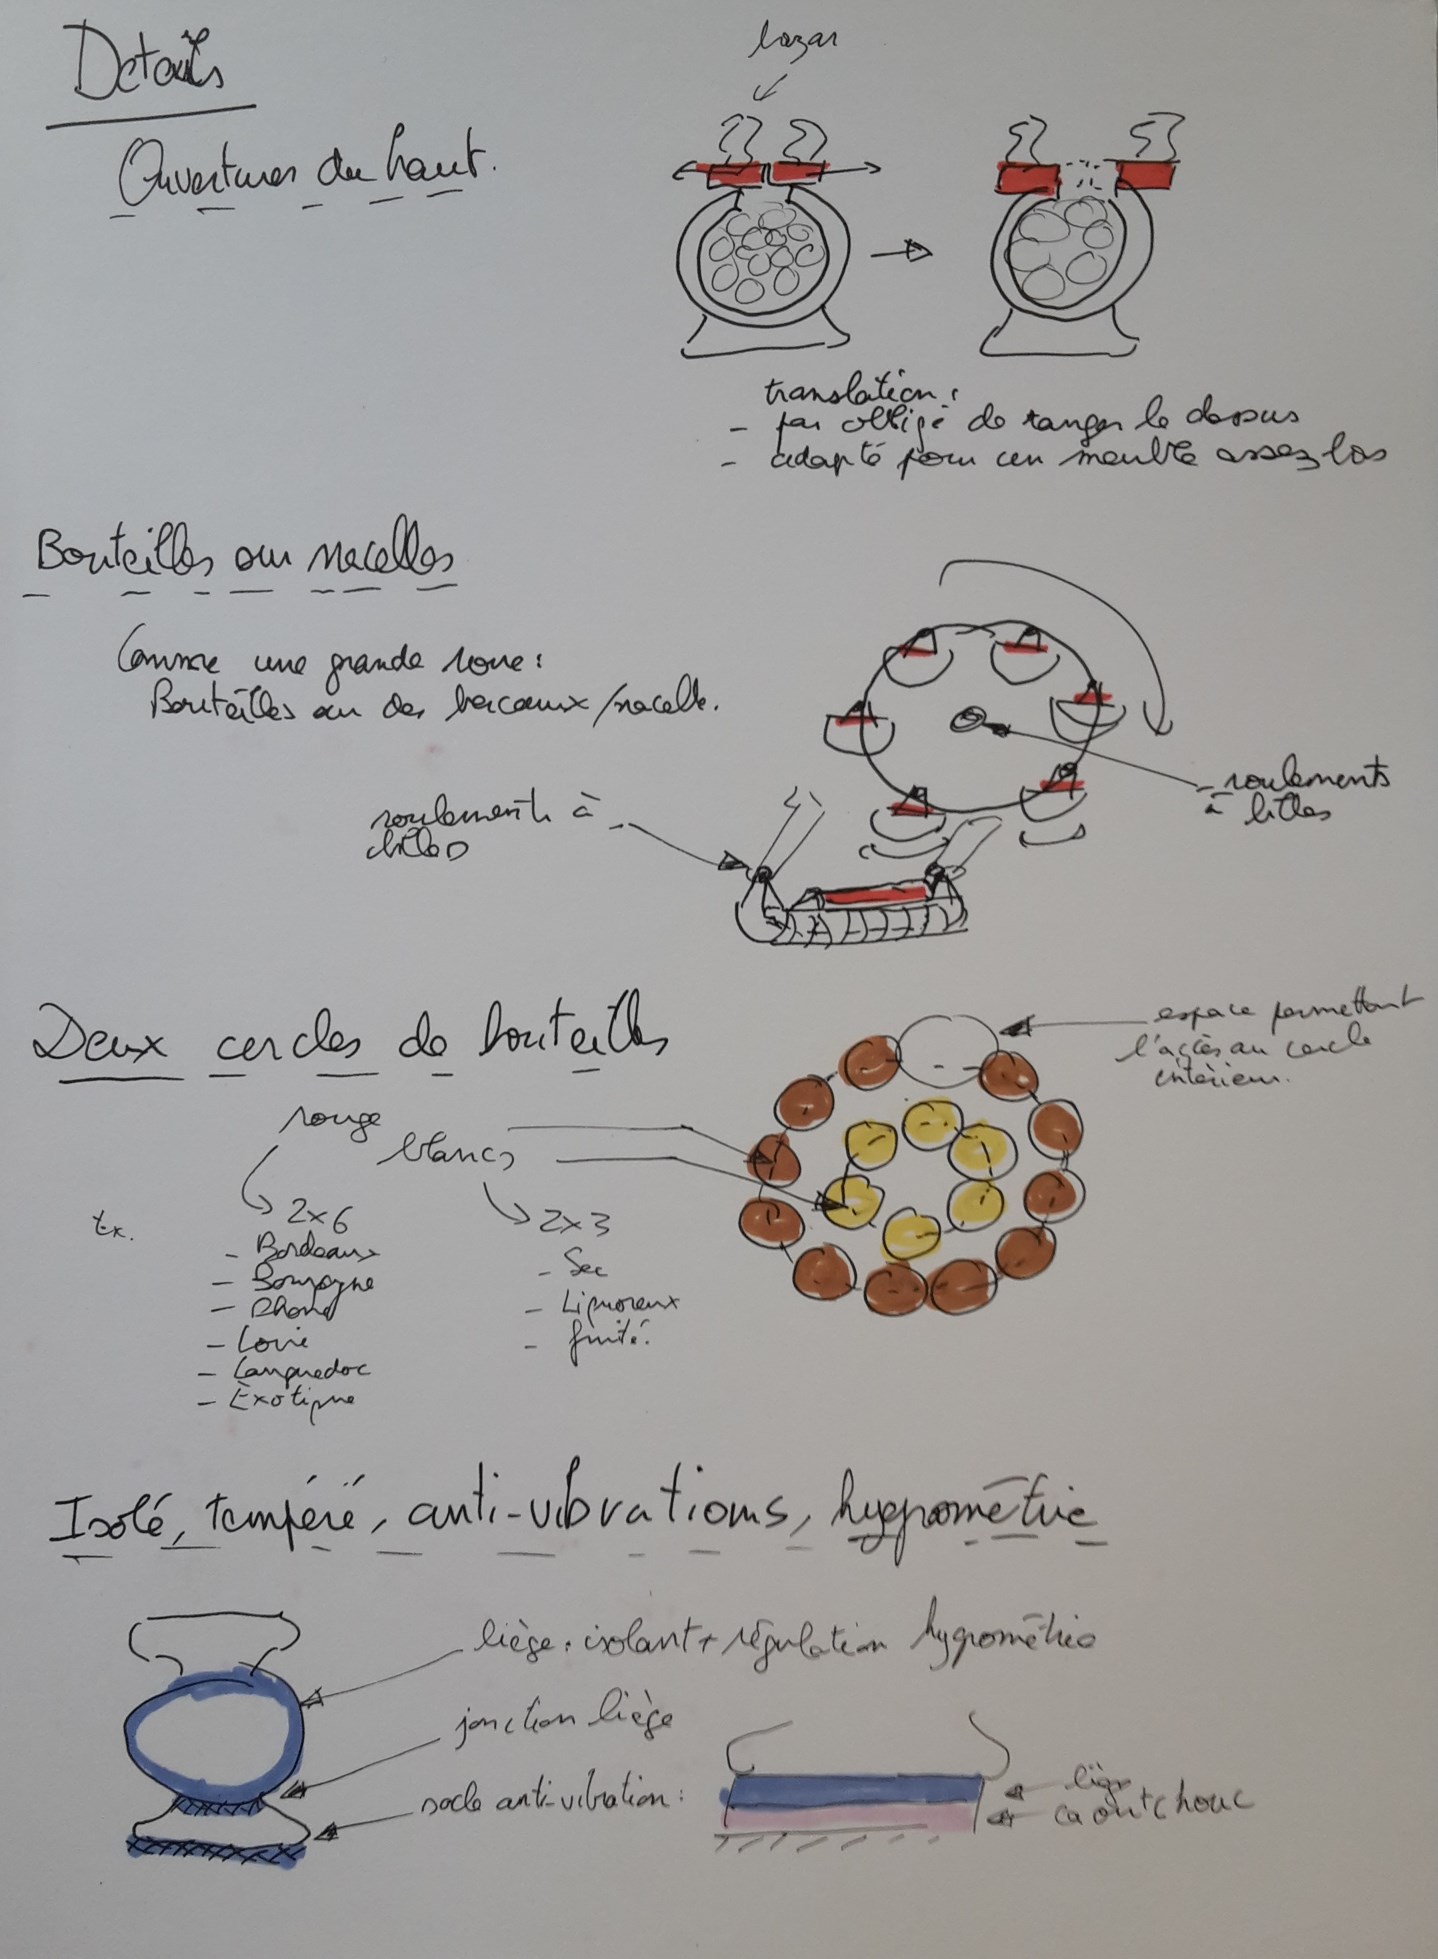 Details
bazar
Ouvertures du haut.
translation :
- pas obligé de ranger le dessus
- adapté pour un meuble assez bas
Bouteilles sur nacelles
Comme une grande roue :
Bouteilles sur des berceaux/nacelle.
roulements
à billes
roulements à
billes
Deux cercles de bouteilles
espace permettant
l'accès au cercle
intérieur.
rouge
blancs
Ex.
2x6
- Bordeaux
- Bourgogne
- Rhone
- Loire
- Languedoc
- Exotique
2x3
- Sec
- Liquoreux
- fruité.
Isolé, tempéré, anti-vibrations, hygrométrie
liège : isolant + régulation hygrométrie
jonction liège
socle anti-vibration :
liège
caoutchouc